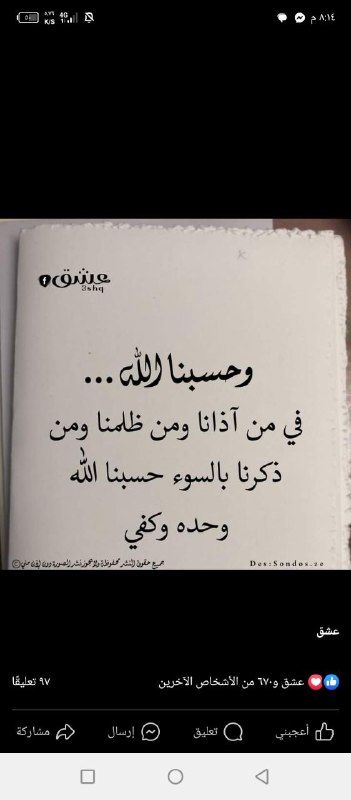 ٨:١٤ م
4G
٥٫٧٦
K/S
عشق
3shq
وحسبنا الله ...
في من آذانا ومن ظلمنا ومن
ذكرنا بالسوء حسبنا الله
وحده وكفي
جميع حقوق النشر محفوظة ولا يجوز نشر الصورة دون إذن مني ©
Des:Sondos.ze
عشق
عشق و٦٧٠ من الأشخاص الآخرين
٩٧ تعليقًا
أعجبني
تعليق
إرسال
مشاركة